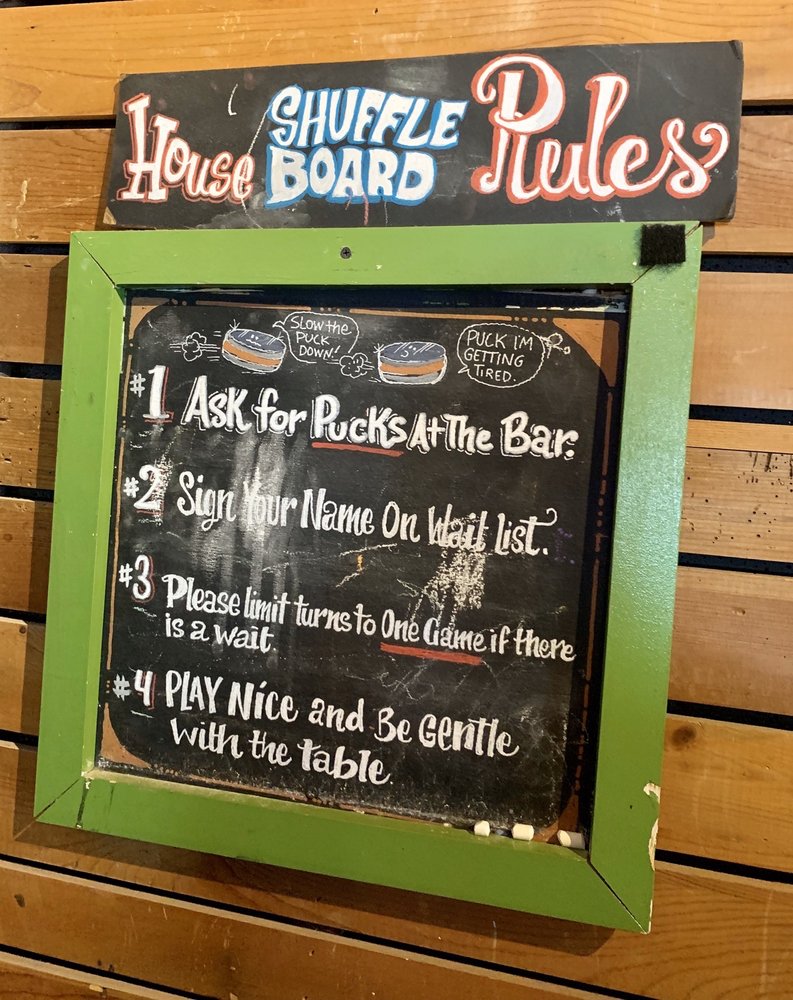 House SHUFFLE BOARD Rules
SLOW the PUCK DOWN!
PUCK I'M GETTING TIRED.
#1 Ask for Pucks At The Bar.
#2 Sign Your Name On Wait List.
#3 Please limit turns to One Game if there
is a wait.
#4 PLAY Nice and Be Gentle
with the table.